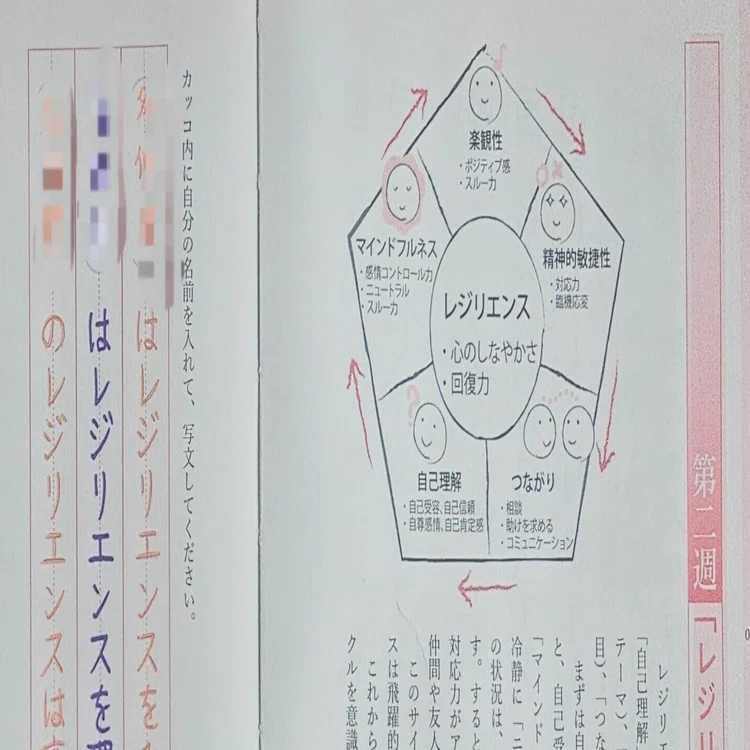 第二週
「レジリ
レジリ
「自己理解
テーマ)、
目)、「つな
まずは自
と、自己受
「マインド
冷静に「ニ
の状況は、
す。すると
対応力がア
仲間や友人
このサイ
スは飛躍的
これから
クルを意識
楽観性
・ポジティブ感
・スルー力
精神的敏捷性
・対応力
・臨機応変
つながり
・相談
・助けを求める
・コミュニケーション
自己理解
・自己受容、自己信頼
・自尊感情、自己肯定感
マインドフルネス
・感情コントロール力
・ニュートラル
・スルー力
レジリエンス
・心のしなやかさ
・回復力
カッコ内に自分の名前を入れて、写文してください。
はレジリエンスを
はレジリエンスを
のレジリエンスは